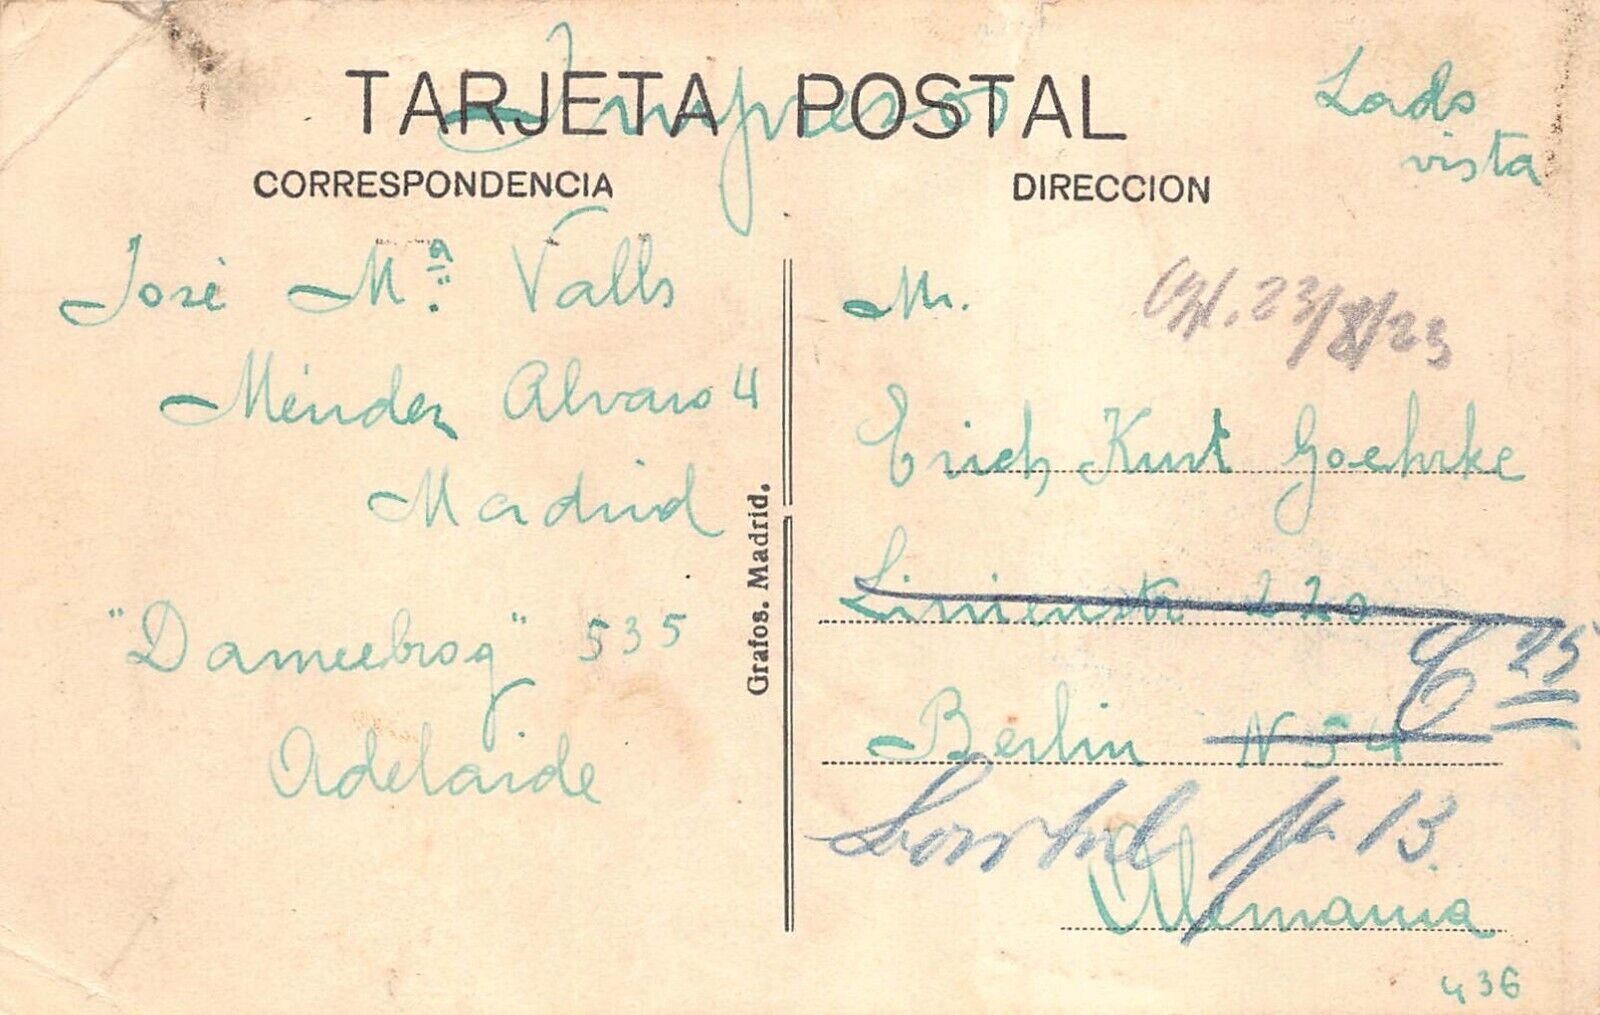 TARJETA POSTAL
Impreso
Lado
vista
CORRESPONDENCIA
DIRECCION
José Mª Valls
Méndez Alvaro 4
Madrid
"Dameebrog" 535
Adelaide
Grafos. Madrid.
Mr.
23/8/23
Erich Kurt Goehrke
Linienstr 220
C 25
Berlin N 54
13.
Alemania
436